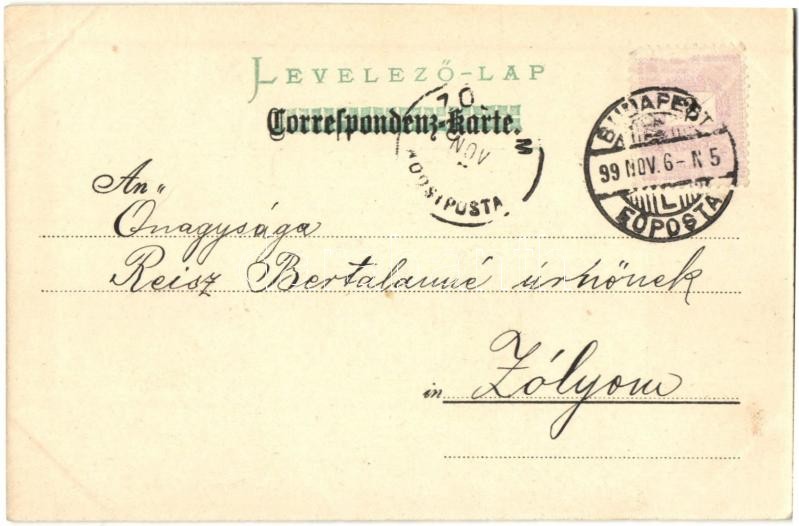 LEVELEZŐ-LAP
Correspondenz-Karte.
ZO M
NOV
BUDAPEST
99 NOV. 6 - N 5
L
FŐPOSTA
An"
Őnagysága
Reisz Bertalanné úrhőnek
in Zólyom